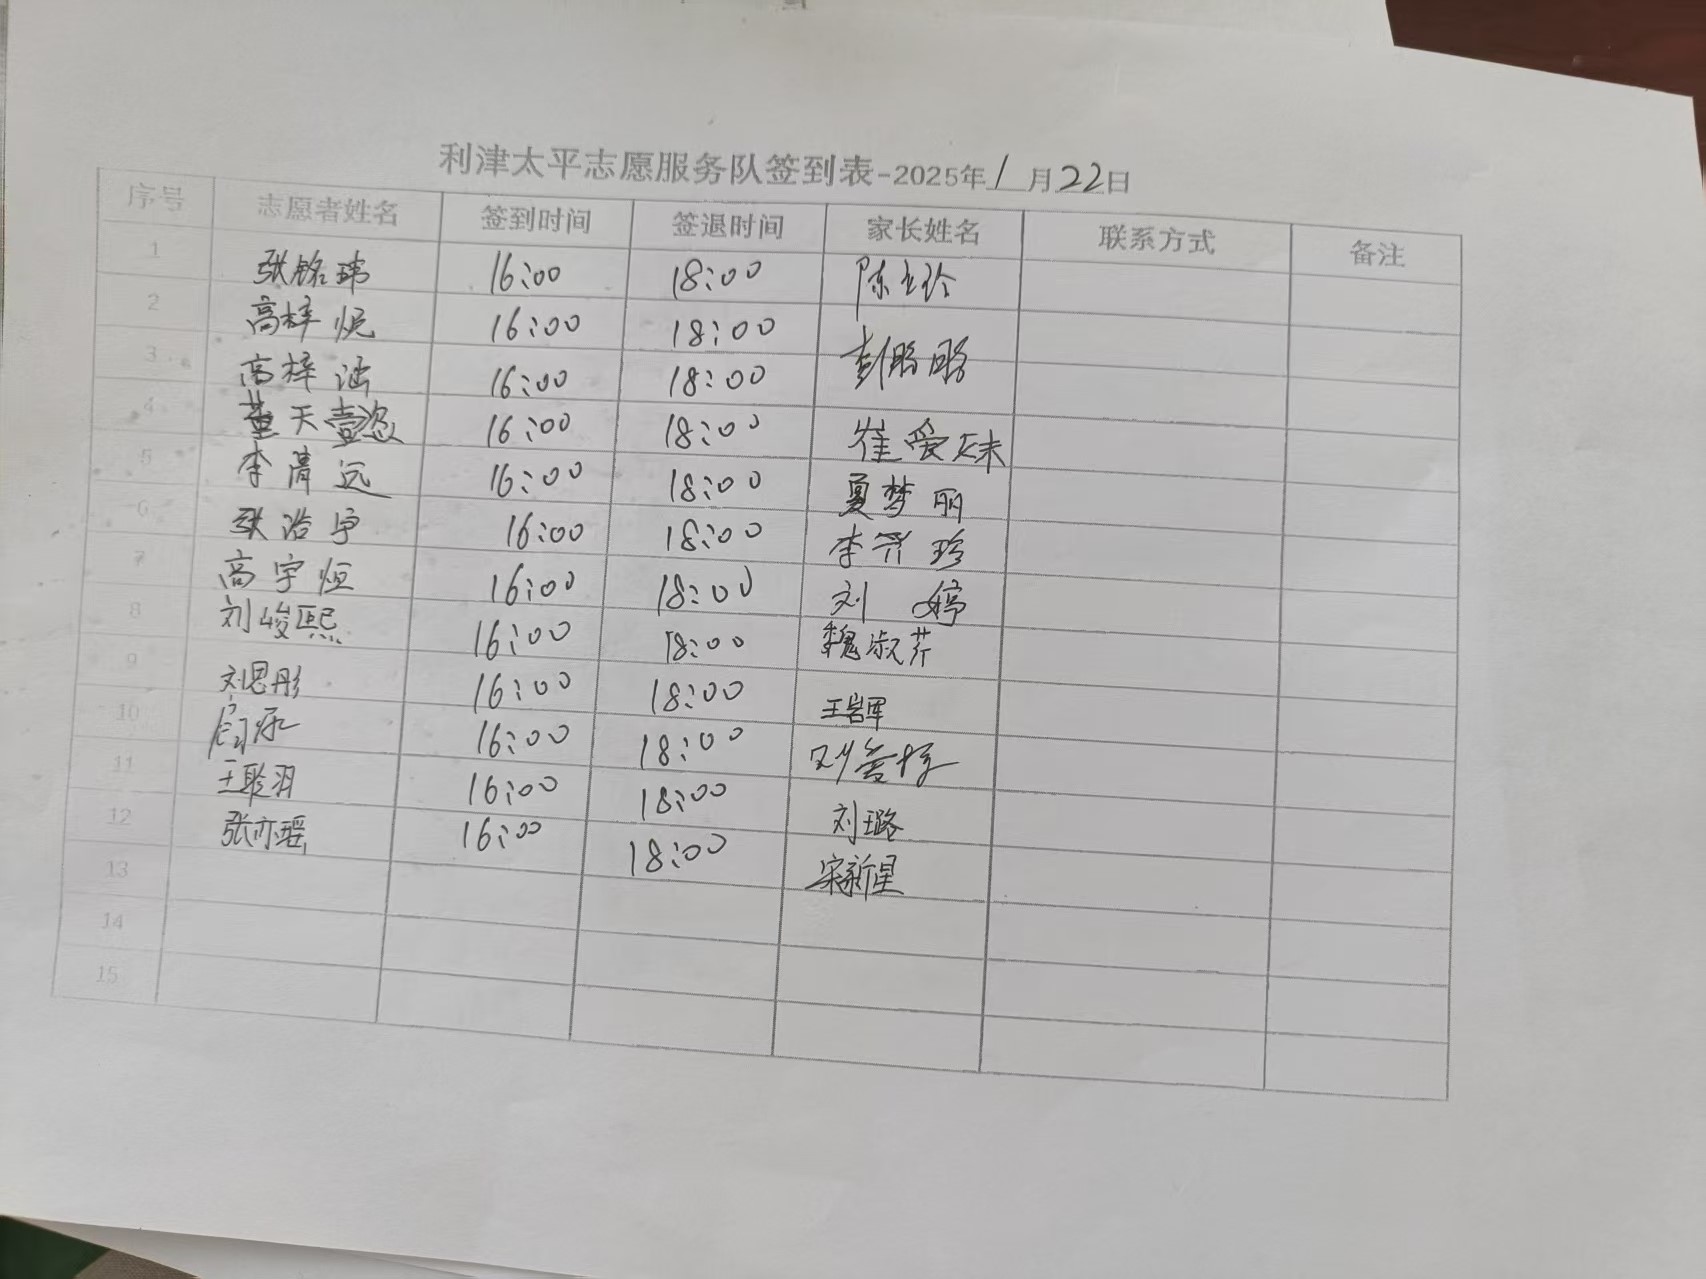 利津太平志愿服务队签到表-2025年1月22日
序号 志愿者姓名 签到时间 签退时间 家长姓名 联系方式 备注
1 张铭玮 16:00 18:00 陈立玲
2 高梓悦 16:00 18:00 彭鹏鹏
3 高梓涵 16:00 18:00
4 董天壹 16:00 18:00 崔爱妹
5 李清远 16:00 18:00 夏梦丽
6 张浩宇 16:00 18:00 李珍
7 高宇恒 16:00 18:00 刘婷
8 刘峻熙 16:00 18:00 魏淑芹
9 刘思彤 16:00 18:00 王岩军
10 16:00 18:00 刘
11 王聆羽 16:00 18:00 刘璐
12 张亦瑶 16:00 18:00 宋新星
13
14
15